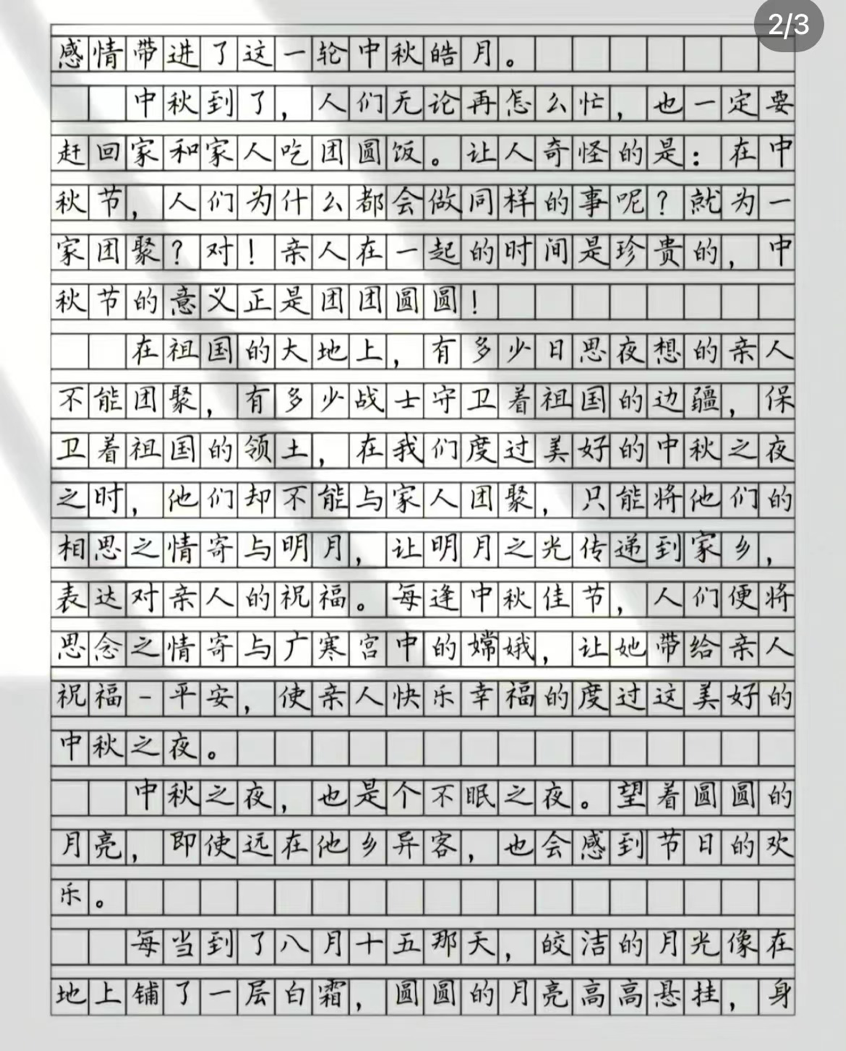 2/3
感情带进了这一轮中秋皓月。
中秋到了，人们无论再怎么忙，也一定要
赶回家和家人吃团圆饭。让人奇怪的是：在中
秋节，人们为什么都会做同样的事呢？就为一
家团聚？对！亲人在一起的时间是珍贵的，中
秋节的意义正是团团圆圆！
在祖国的大地上，有多少日思夜想的亲人
不能团聚，有多少战士守卫着祖国的边疆，保
卫着祖国的领土，在我们度过美好的中秋之夜
之时，他们却不能与家人团聚，只能将他们的
相思之情寄与明月，让明月之光传递到家乡，
表达对亲人的祝福。每逢中秋佳节，人们便将
思念之情寄与广寒宫中的嫦娥，让她带给亲人
祝福-平安，使亲人快乐幸福的度过这美好的
中秋之夜。
中秋之夜，也是个不眠之夜。望着圆圆的
月亮，即使远在他乡异客，也会感到节日的欢
乐。
每当到了八月十五那天，皎洁的月光像在
地上铺了一层白霜，圆圆的月亮高高悬挂，身